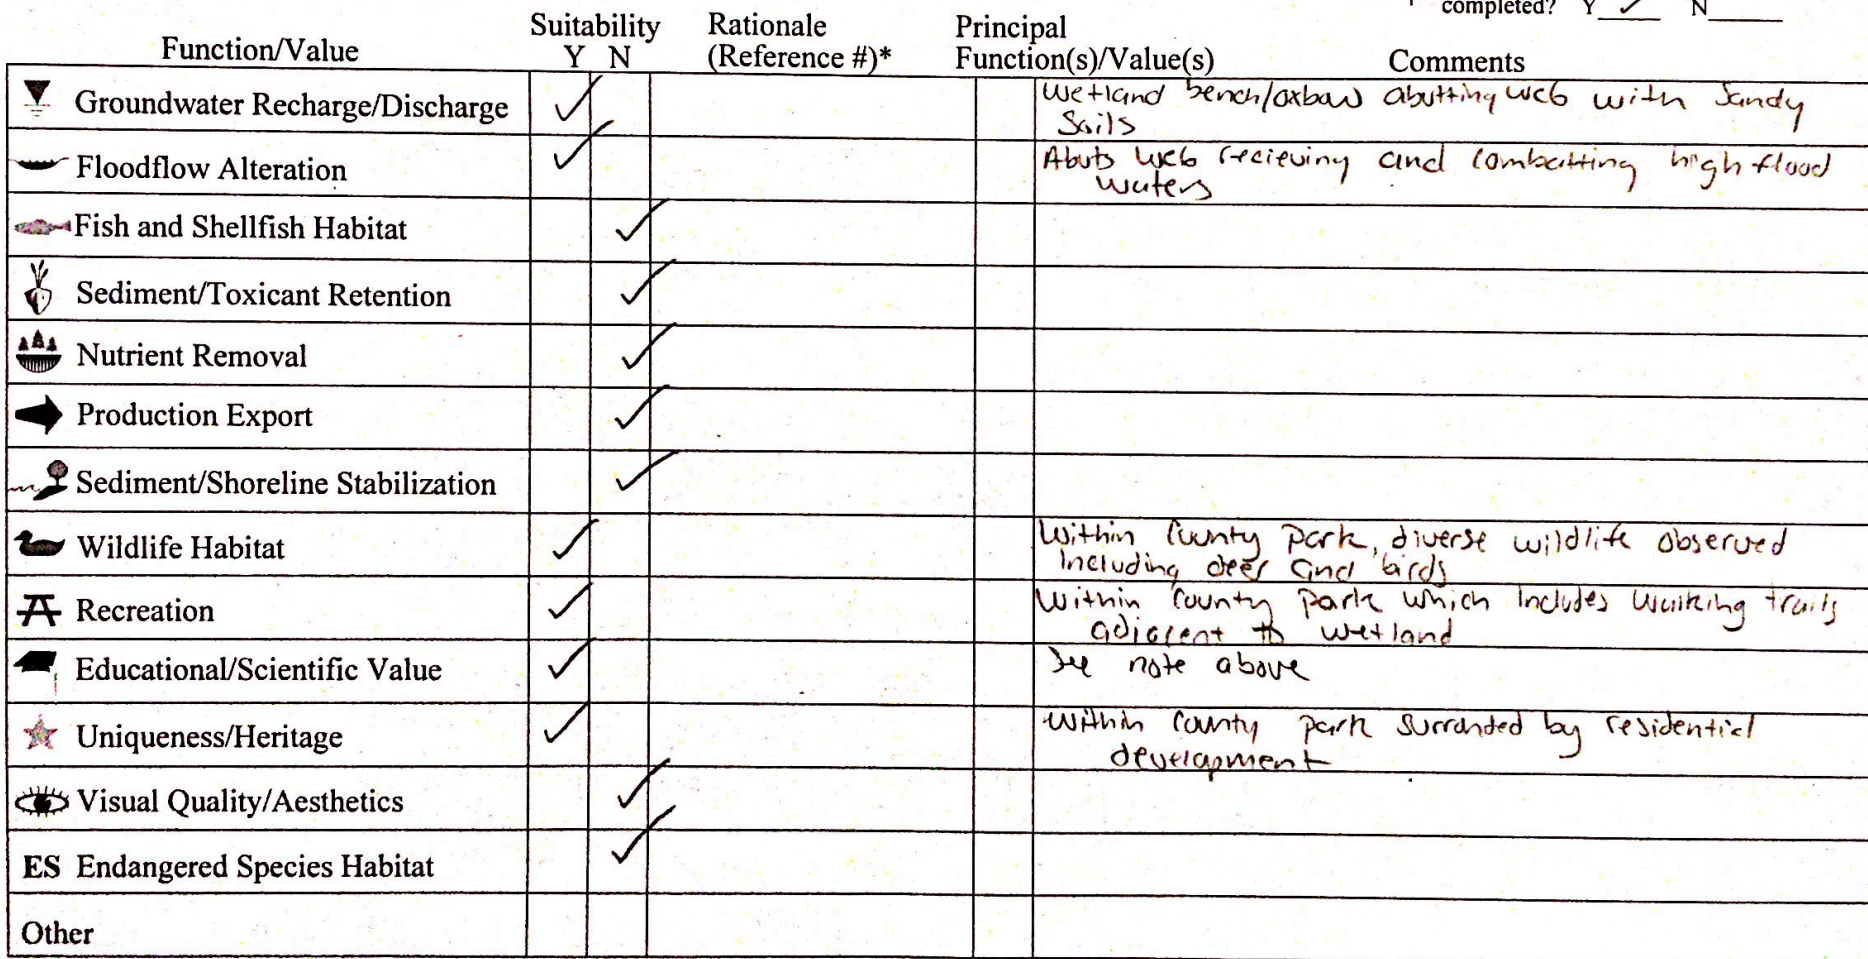 completed? Y ✓ N
Suitability Rationale Principal
Function/Value Y N (Reference #)* Function(s)/Value(s) Comments
Groundwater Recharge/Discharge ✓ Wetland bench/oxbow abutting WC6 with Sandy
Soils
Floodflow Alteration ✓ Abuts WC6 recieving and combatting high flood
waters
Fish and Shellfish Habitat ✓
Sediment/Toxicant Retention ✓
Nutrient Removal ✓
Production Export ✓
Sediment/Shoreline Stabilization ✓
Wildlife Habitat ✓ Within County Park, diverse wildlife observed
Including deer and birds
Recreation ✓ Within County Park which Includes walking trails
adjacent to wetland
Educational/Scientific Value ✓ See note above
Uniqueness/Heritage ✓ Within County park surronded by residential
development
Visual Quality/Aesthetics ✓
ES Endangered Species Habitat ✓
Other